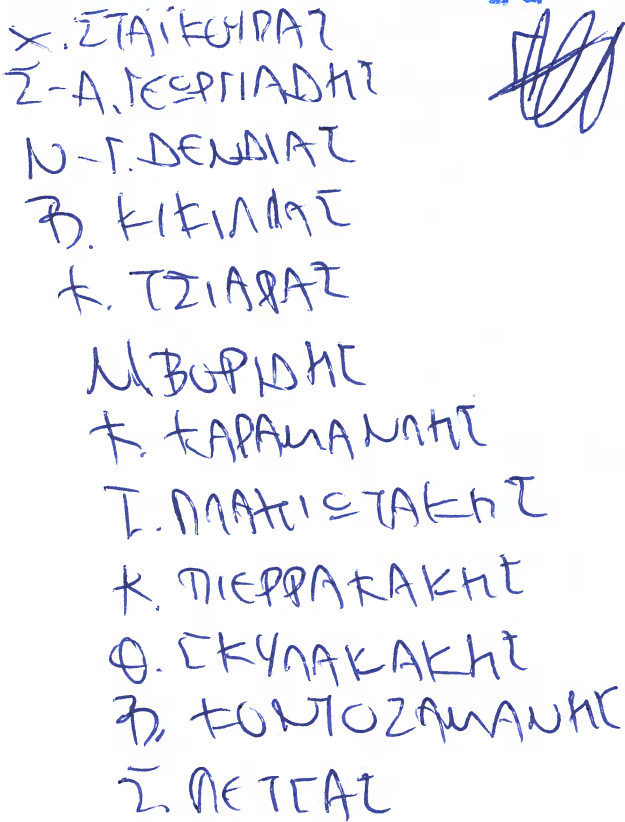 Χ. ΣΤΑΪΚΟΥΡΑΣ
Σ-Α. ΓΕΩΡΓΙΑΔΗΣ
Ν-Γ. ΔΕΝΔΙΑΣ
Β. ΚΙΚΙΛΙΑΣ
Κ. ΤΣΙΑΡΑΣ
Μ ΒΟΡΙΔΗΣ
Κ. ΚΑΡΑΜΑΝΛΗΣ
Ι. ΠΛΑΚΙΩΤΑΚΗΣ
Κ. ΠΙΕΡΡΑΚΑΚΗΣ
Θ. ΣΚΥΛΑΚΑΚΗΣ
Β. ΚΟΝΤΟΖΑΜΑΝΗΣ
Σ. ΠΕΤΣΑΣ